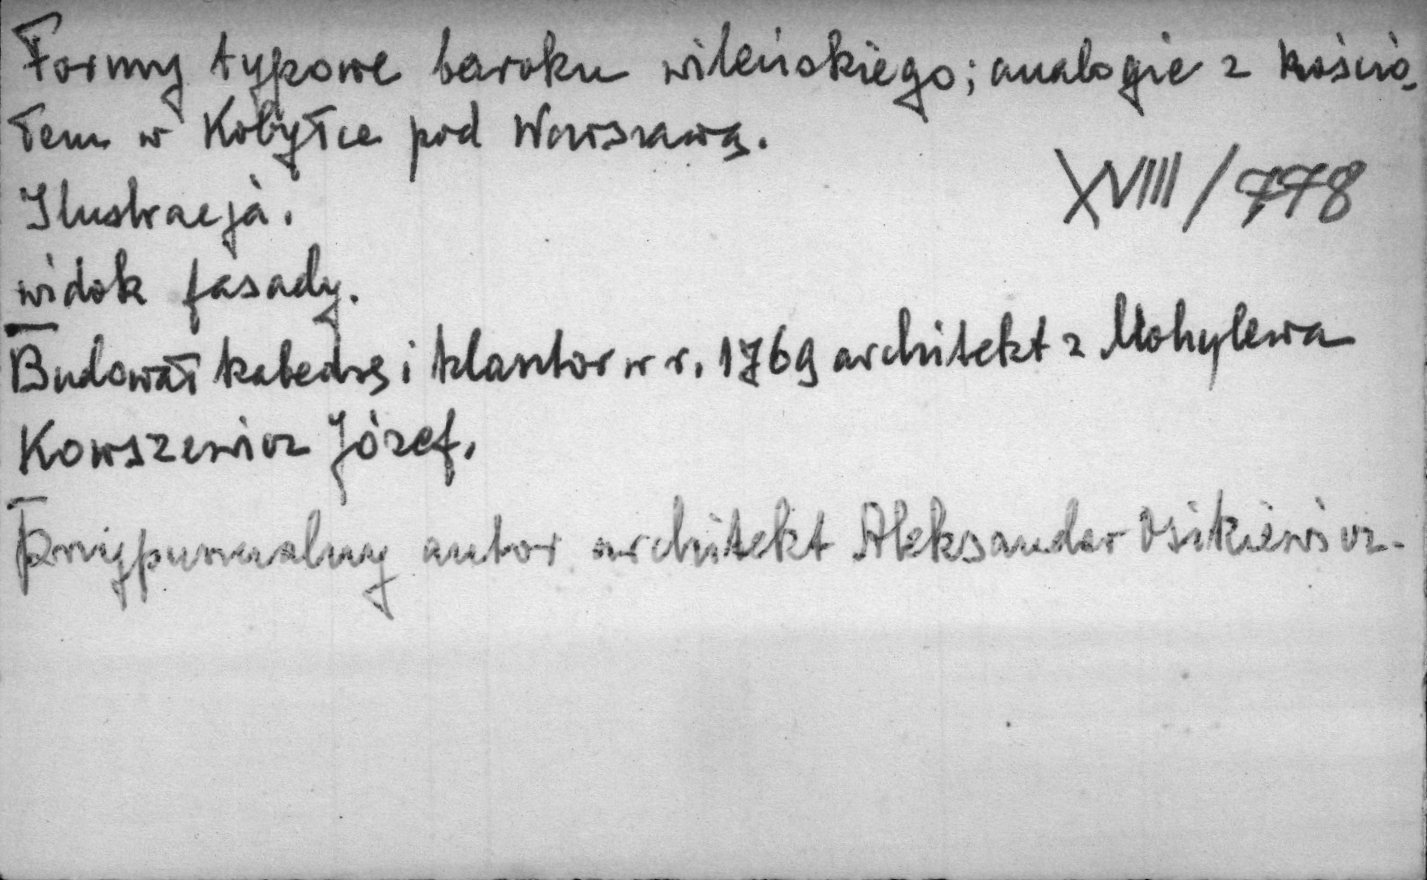 Formy typowe baroku wileńskiego; analogie z kościo-
łem w Kobyłce pod Warszawą.
XVIII/778
Ilustracja.
widok fasady.
Budował katedrę i klasztor w r. 1769 architekt z Mohylewa
Kowszewicz Józef.
Przypuszczalny autor architekt Aleksander Osikiewicz.